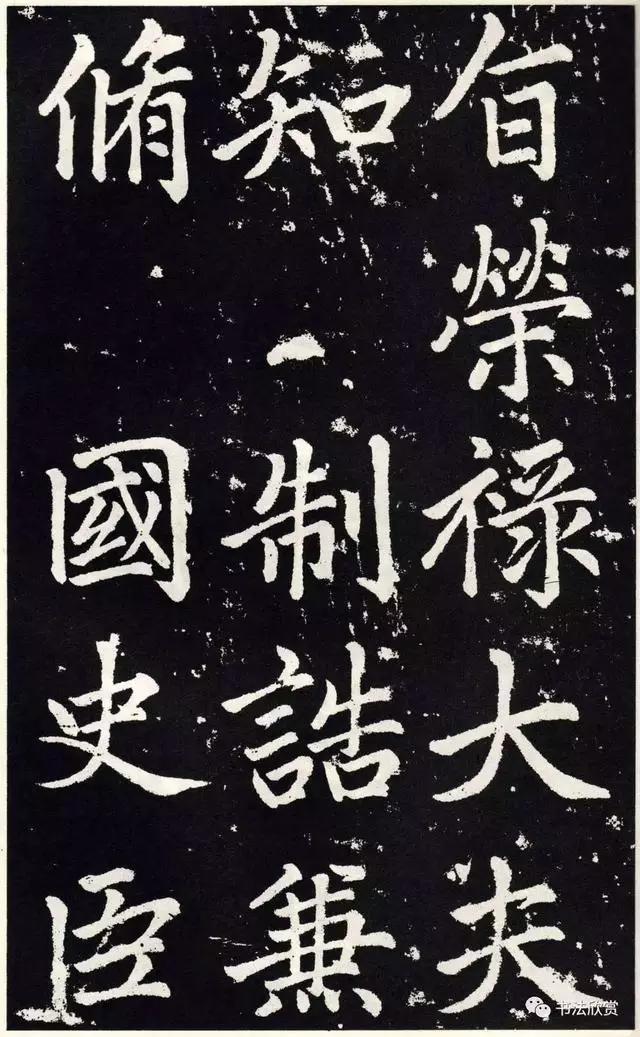 旨榮禄大夫
知制誥兼
脩國史臣
书法欣赏